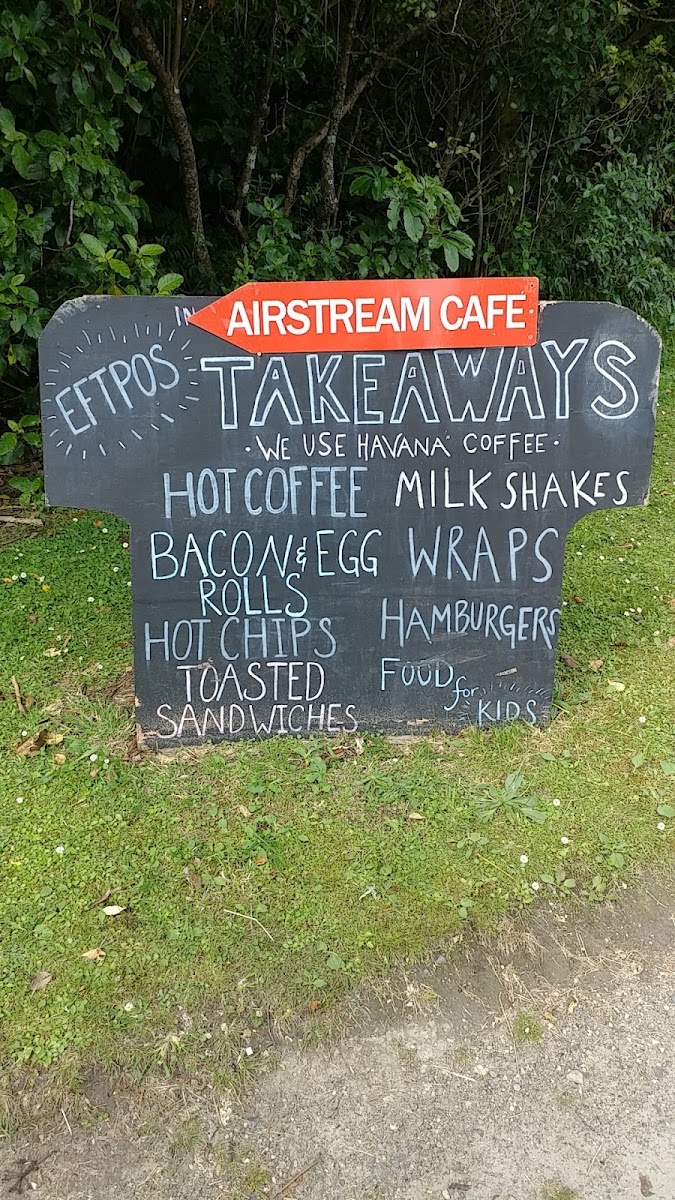 AIRSTREAM CAFE
EFTPOS
TAKEAWAYS
· WE USE HAVANA COFFEE ·
HOT COFFEE
MILK SHAKES
BACON & EGG
ROLLS
WRAPS
HOT CHIPS
HAMBURGERS
TOASTED
SANDWICHES
FOOD for
KIDS